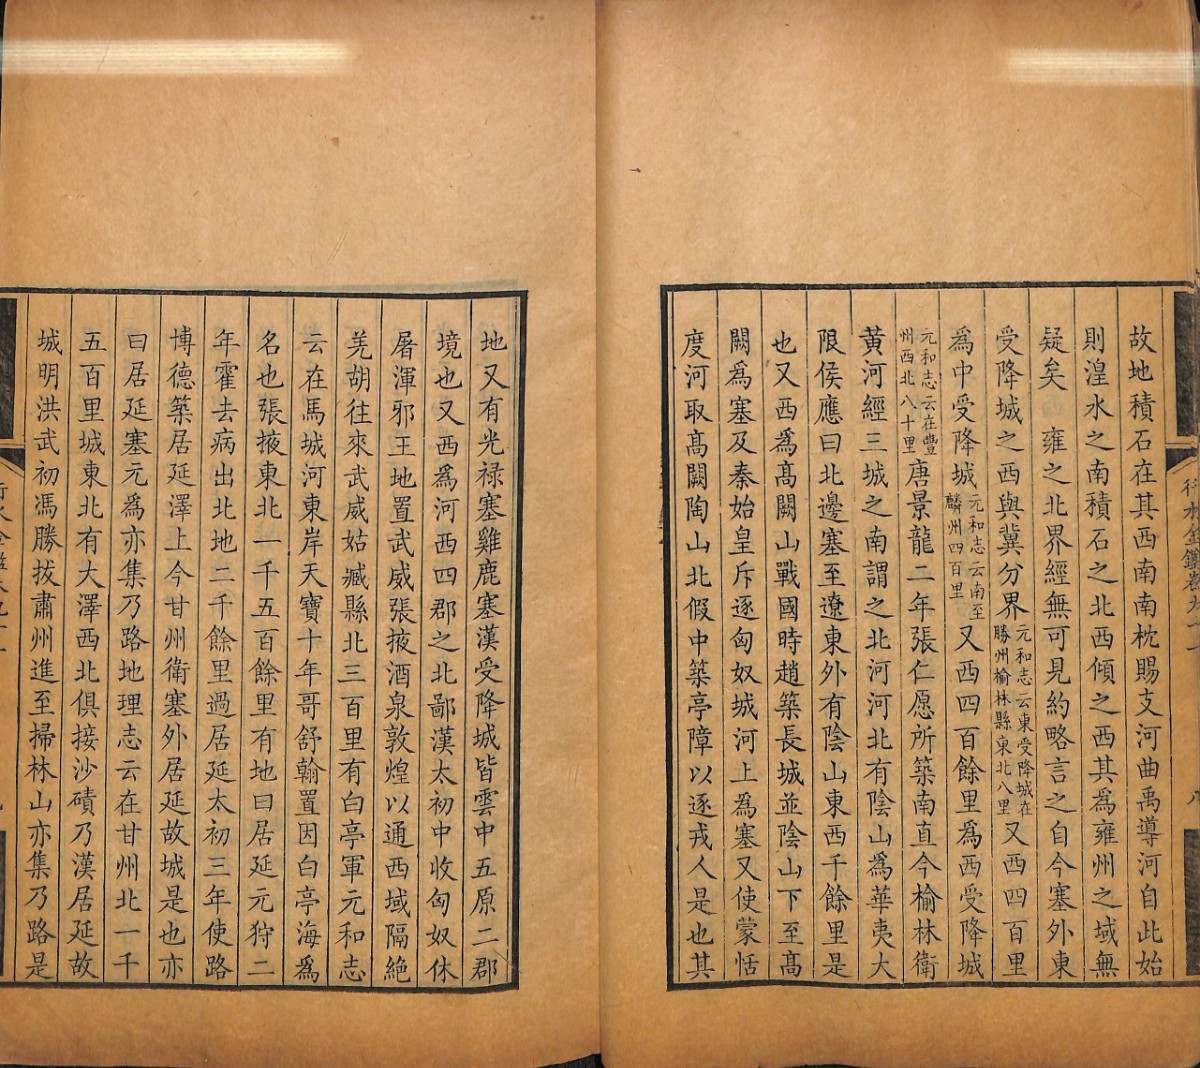 故地積石在其西南南枕賜支河曲禹導河自此始
則湟水之南積石之北西傾之西其爲雍州之域無
疑矣　雍之北界經無可見約略言之自今塞外東
受降城之西與冀分界元和志云東受降城在勝州榆林縣東北八里又西四百里
爲中受降城元和志云南至麟州四百里又西四百餘里爲西受降城
元和志云在豐州西北八十里唐景龍二年張仁愿所築南直今榆林衛
黄河經三城之南謂之北河河北有陰山爲華夷大
限侯應曰北邊塞至遼東外有陰山東西千餘里是
也又西爲高闕山戰國時趙築長城並陰山下至高
闕爲塞及秦始皇斥逐匈奴城河上爲塞又使蒙恬
度河取高闕陶山北假中築亭障以逐戎人是也其
地又有光禄塞雞鹿塞漢受降城皆雲中五原二郡
境也又西爲河西四郡之北鄙漢太初中收匈奴休
屠渾邪王地置武威張掖酒泉敦煌以通西域隔絶
羌胡往來武威姑臧縣北三百里有白亭軍元和志
云在馬城河東岸天寶十年哥舒翰置因白亭海爲
名也張掖東北一千五百餘里有地曰居延元狩二
年霍去病出北地二千餘里過居延太初三年使路
博德築居延澤上今甘州衛塞外居延故城是也亦
曰居延塞元爲亦集乃路地理志云在甘州北一千
五百里城東北有大澤西北俱接沙磧乃漢居延故
城明洪武初馮勝拔肅州進至掃林山亦集乃路是